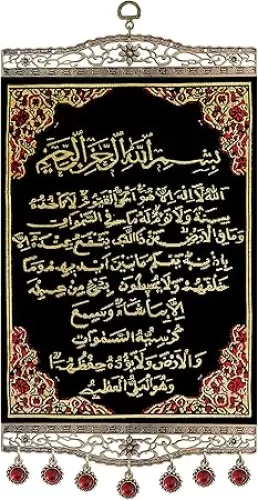 بسم الله الرحمن الرحيم
الله لا اله الا هو الحي القيوم لا تأخذه
سنة ولا نوم له ما في السموات
وما في الارض من ذا الذي يشفع عنده الا
باذنه يعلم ما بين ايديهم وما
خلفهم ولا يحيطون بشيء من علمه
الا بما شاء وسع
كرسيه السموات
والارض ولا يؤده حفظهما
وهو العلي العظيم